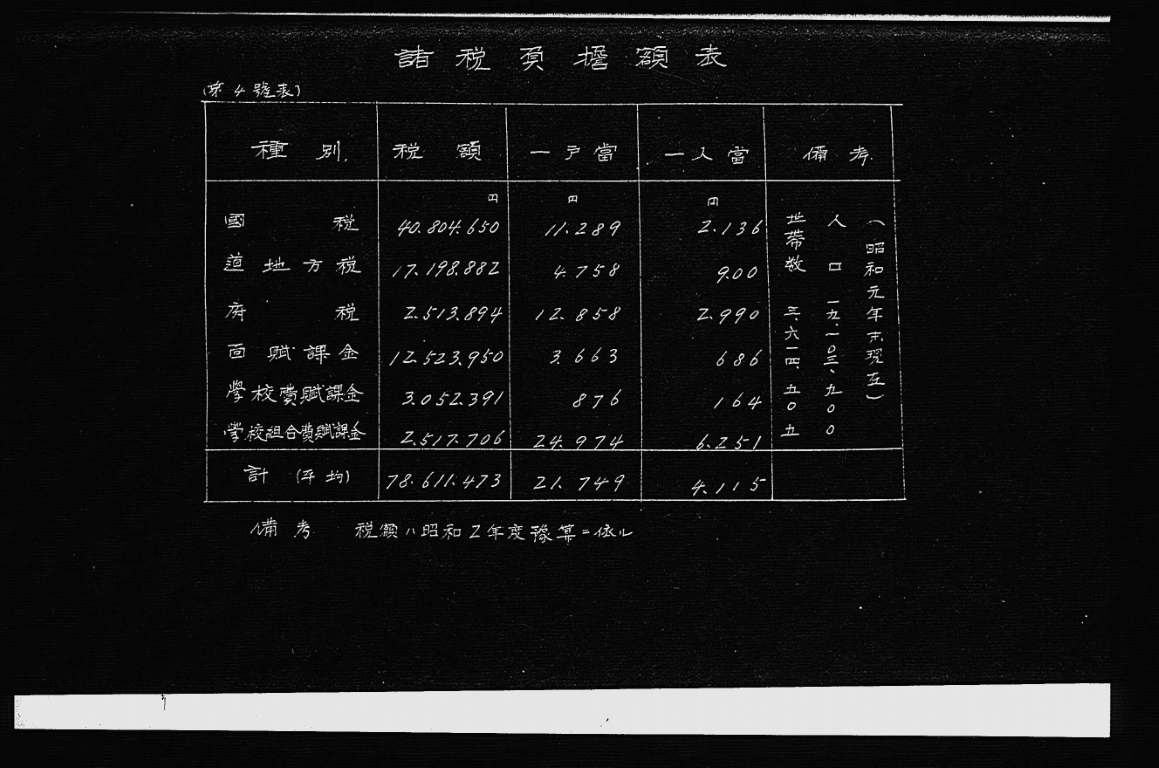 諸税負擔額表
(第4號表)
種別 税額 一戸當 一人當 備考
円 円 円
國税 40.804.650 11.289 2.136
道地方税 17.198.882 4.758 900
府税 2.513.894 12.858 2.990
面賦課金 12.523.950 3.663 686
學校費賦課金 3.052.391 876 164
學校組合費賦課金 2.517.706 24.974 6.251
計(平均) 78.611.473 21.749 4.115
(昭和元年末現在)
人口 一九、一〇三、九〇〇
世帯数 三、六一四、五〇五
備考 税額ハ昭和2年度豫算ニ依ル